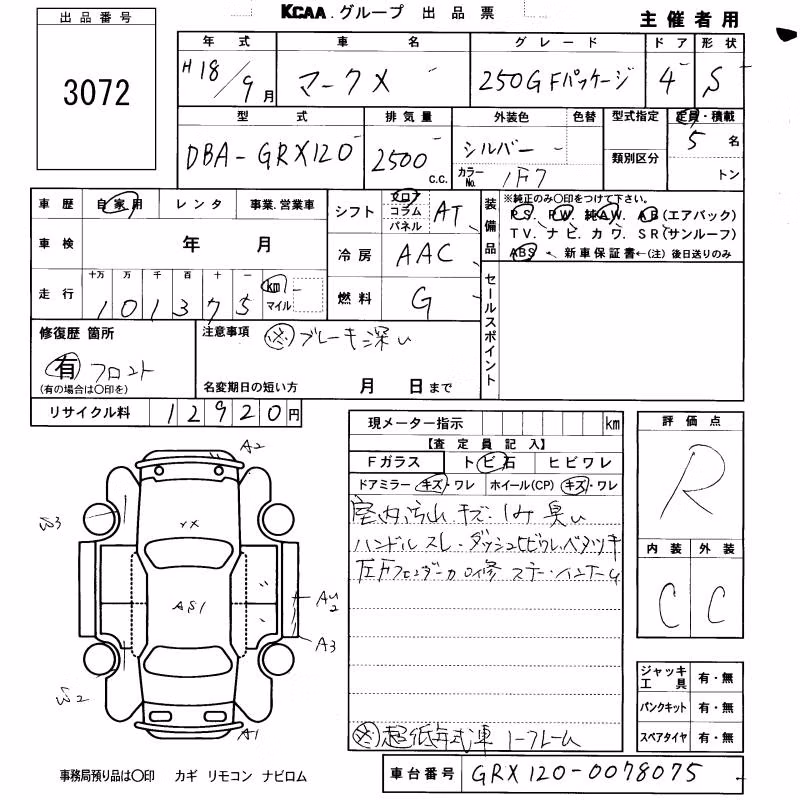 KCAA.グループ 出品票
主催者用
出品番号
3072
年式 車名 グレード ドア 形状
H18/9月 マークX 250G Fパッケージ 4 S
型式 排気量 外装色 色替 型式指定 定員・積載
DBA-GRX120 2500c.c. シルバー 5名
カラーNo. 1F7 類別区分 トン
車歴 自家用 レンタ 事業.営業車
シフト フロア コラム パネル AT
車検 年 月
冷房 AAC
走行 十万 万 千 百 十 一
101375 km マイル
燃料 G
装備品
※純正のみ○印をつけて下さい。
PS. PW. 純AW. AB(エアバック)
TV. ナビ. カワ. SR(サンルーフ)
ABS 新車保証書←(注)後日送りのみ
セールスポイント
修復歴 箇所
有 フロント
(有の場合は○印を)
注意事項
ブレーキ深い
名変期日の短い方 月 日まで
リサイクル料 12920円
現メーター指示 km
【査定員記入】
Fガラス トビ石 ヒビワレ
ドアミラー キズ・ワレ ホイール(CP) キズ・ワレ
室内汚れ キズ
臭い
ハンドルスレ・ダッシュヒビワレベタツキ
超低年式車
評価点
R
内装 外装
C C
ジャッキ工具 有・無
パンクキット 有・無
スペアタイヤ 有・無
A2
YX
AS1
A3
A1
事務局預り品は○印 カギ リモコン ナビロム
車台番号 GRX120-0078075